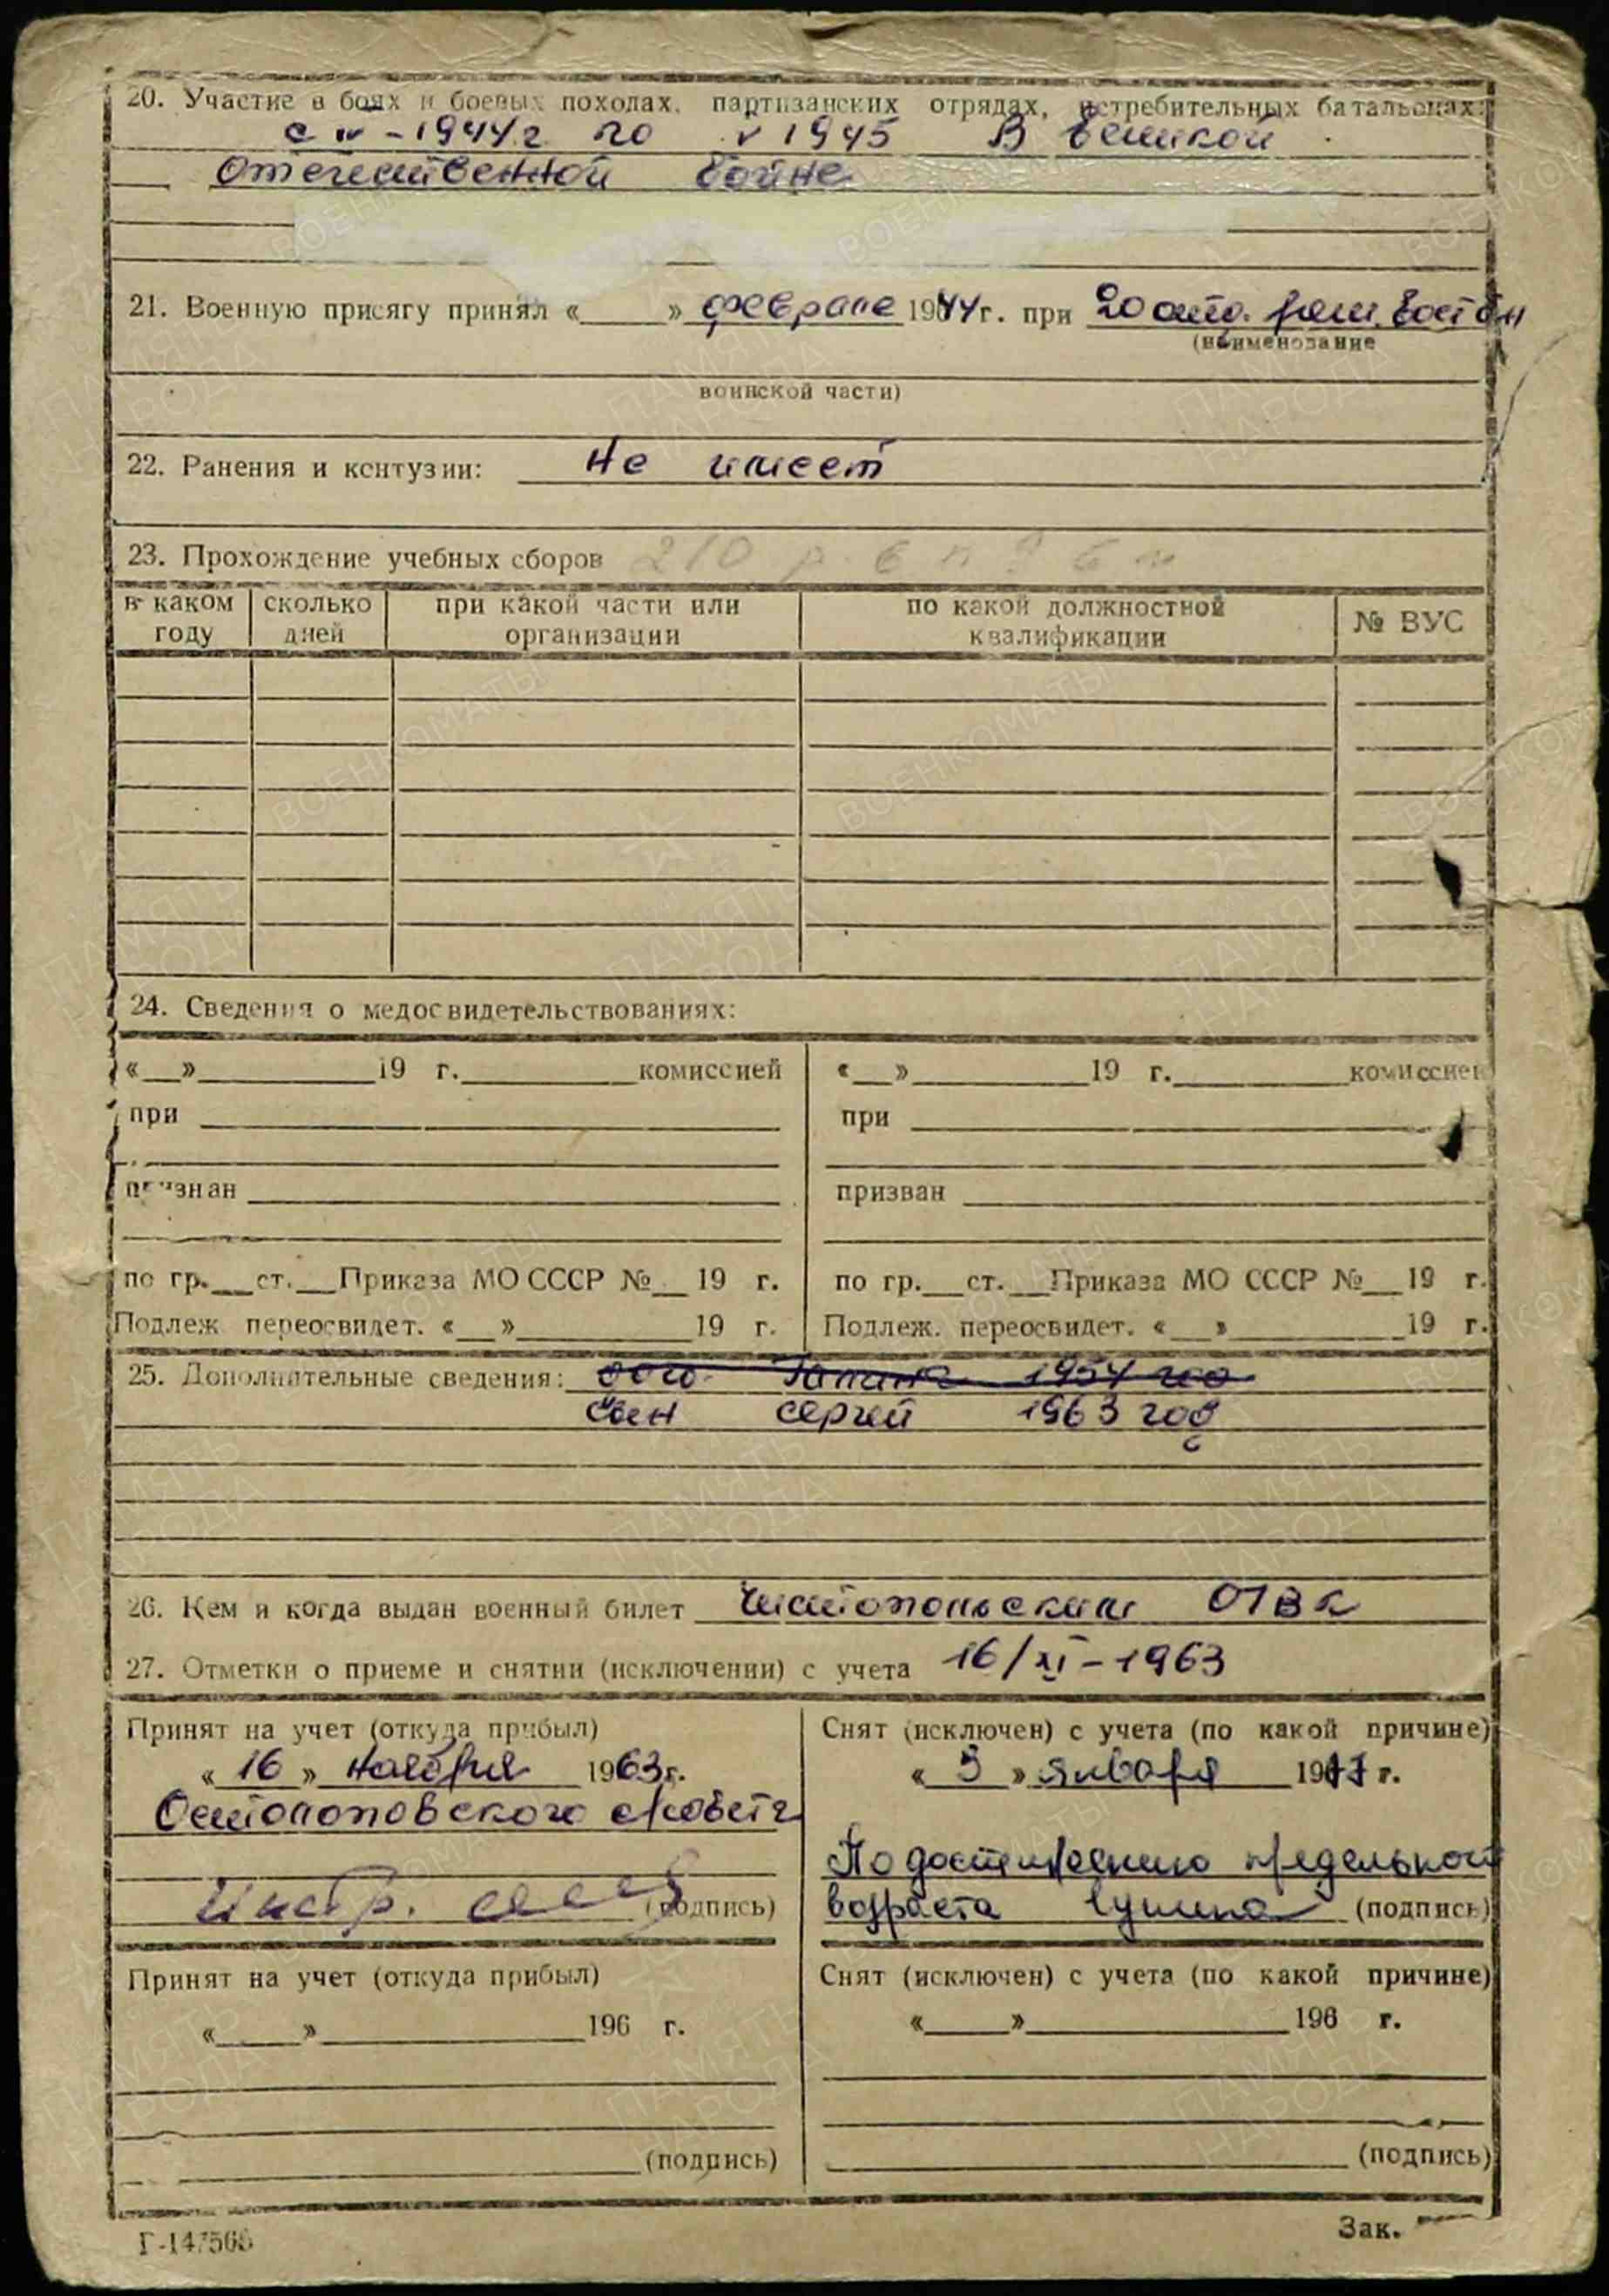 20. Участие в боях и боевых походах, партизанских отрядах, истребительных батальонах:
с IV - 1944 г по V 1945 В Великой
Отечественной Войне
21. Военную присягу принял « » феврале 1944 г. при 20 отд.
(наименование
воинской части)
22. Ранения и контузии: не имеет
23. Прохождение учебных сборов 210
в каком году | сколько дней | при какой части или организации | по какой должностной квалификации | № ВУС
24. Сведения о медосвидетельствованиях:
«__»________19 г.________комиссией
при
признан
по гр.__ст.__Приказа МО СССР №__19 г.
Подлеж. переосвидет. «__»________19 г.
«__»________19 г.________комиссией
при
призван
по гр.__ст.__Приказа МО СССР №__19 г.
Подлеж. переосвидет. «__»________19 г.
25. Дополнительные сведения: 1954 год
сын сергей 1963 год
26. Кем и когда выдан военный билет Чистопольским ОГВК
27. Отметки о приеме и снятии (исключении) с учета 16/XI-1963
Принят на учет (откуда прибыл)
« 16 » ноября 1963 г.
с/совета
Инстр. (подпись)
Снят (исключен) с учета (по какой причине)
« 5 » января 1977 г.
По достижению предельного
возраста (подпись)
Принят на учет (откуда прибыл)
«____»________196 г.
(подпись)
Снят (исключен) с учета (по какой причине)
«____»________196 г.
(подпись)
Зак.
ПАМЯТЬ НАРОДА
ВОЕНКОМАТЫ